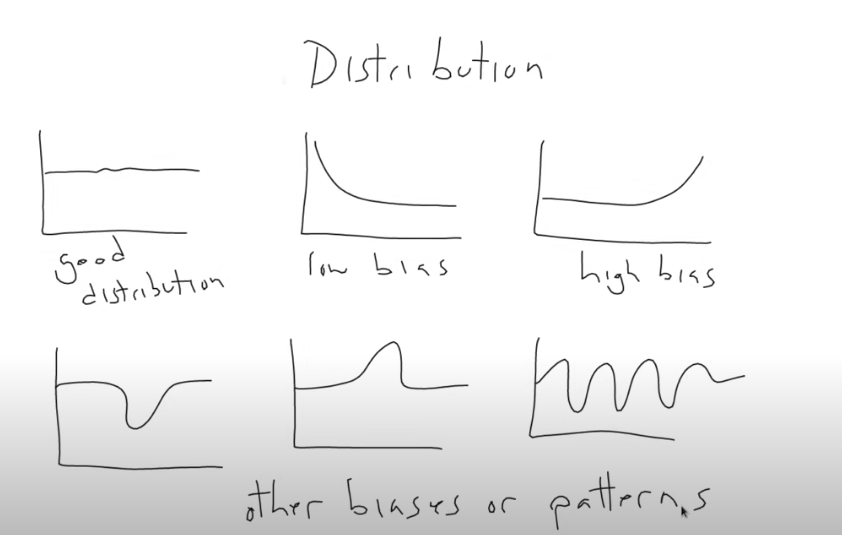 Distribution
good
distribution
low bias
high bias
other biases or patterns